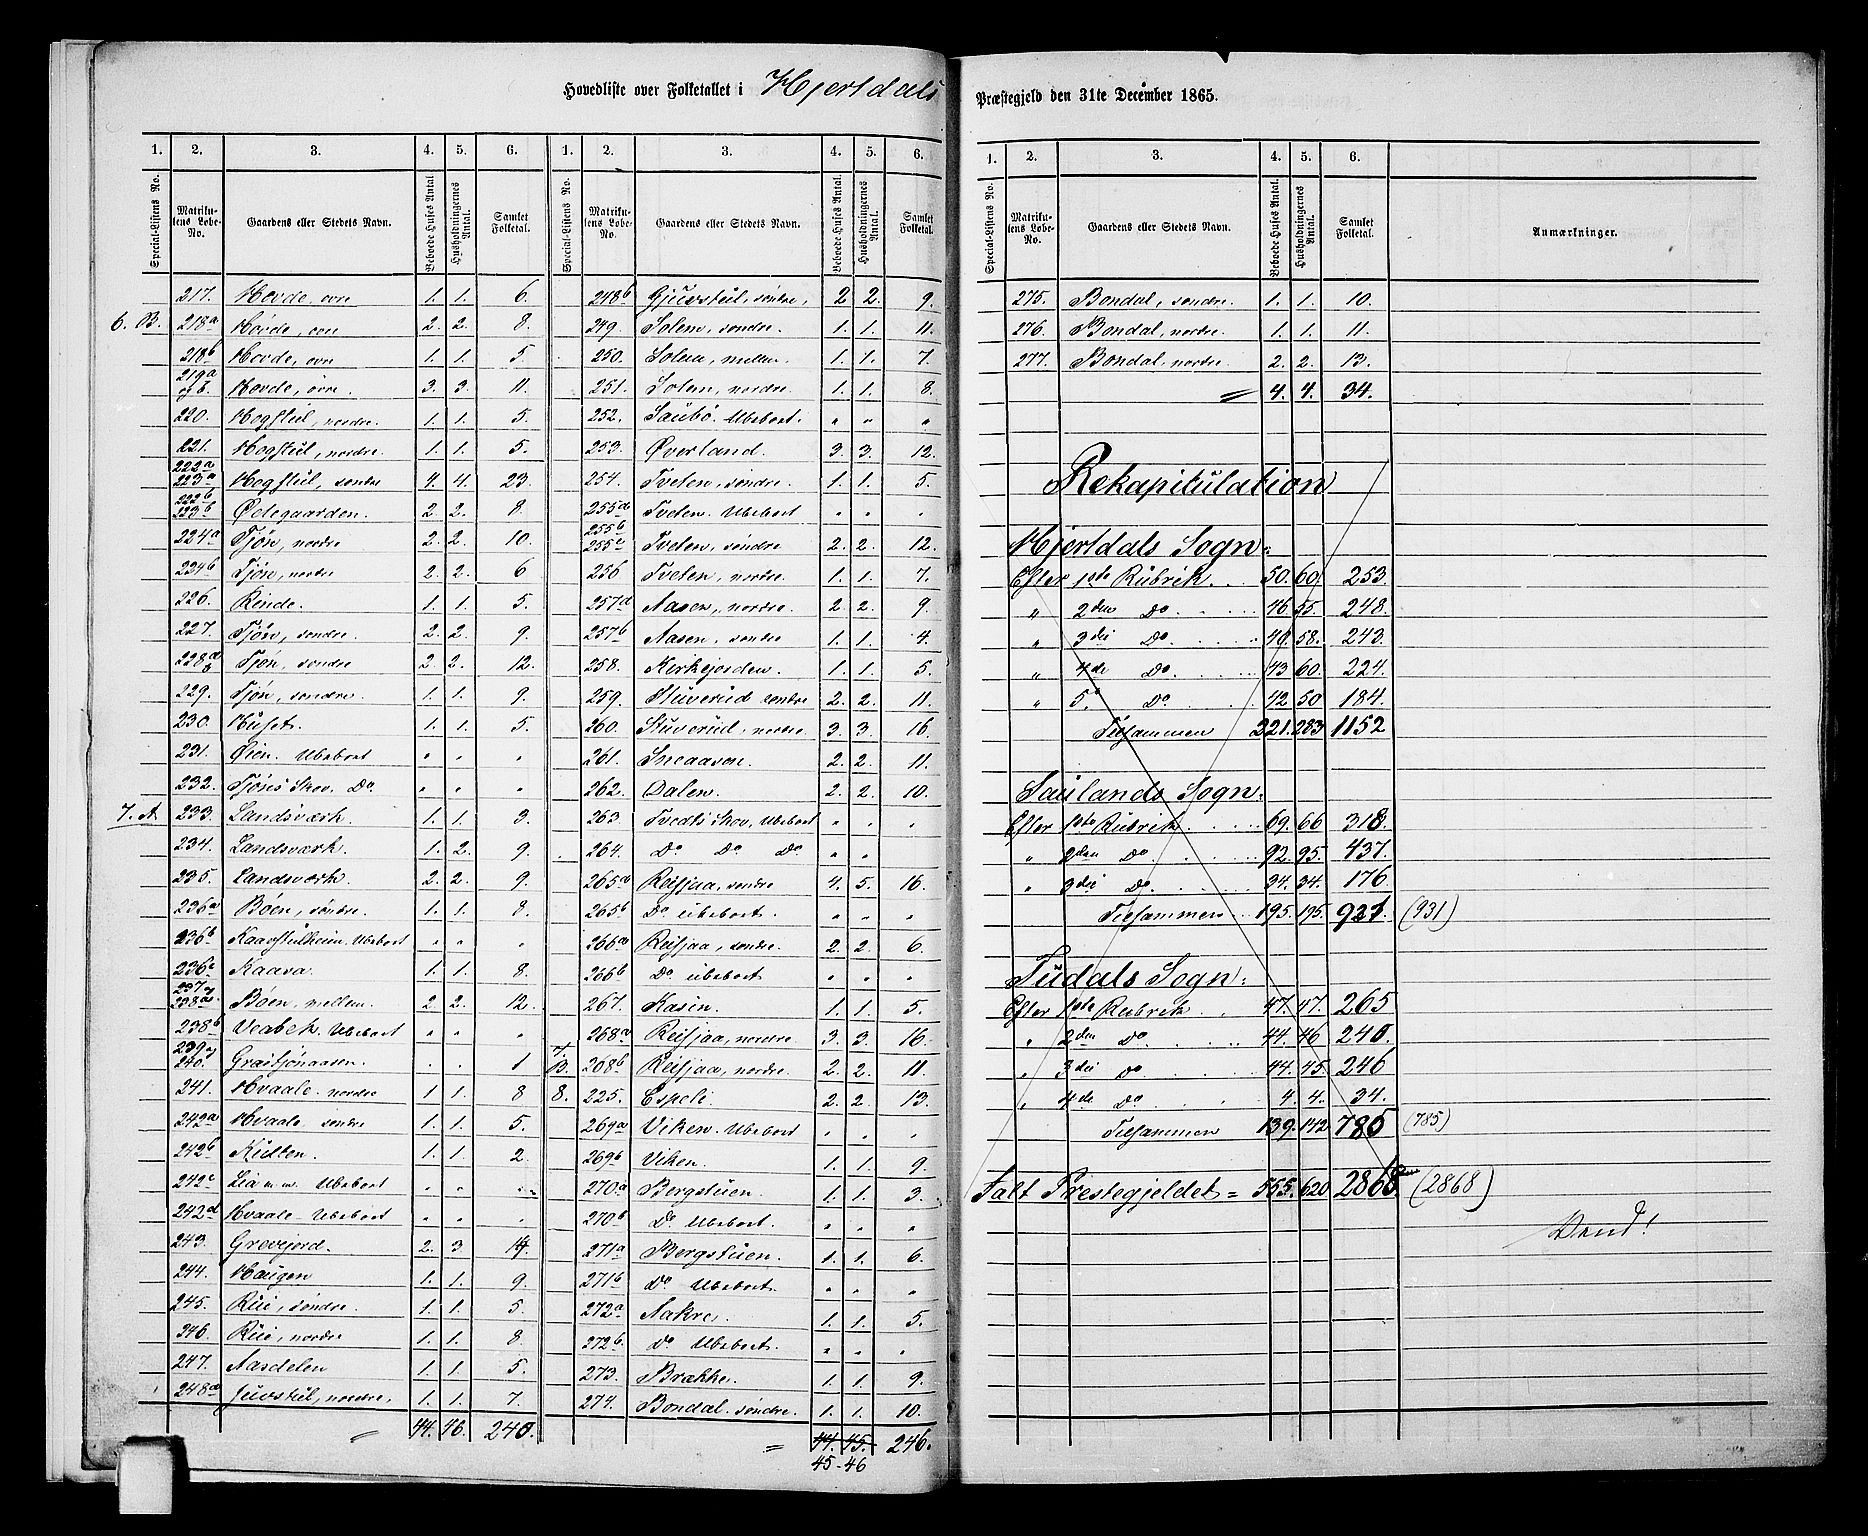 Hovedliste over Folketallet i Hjertdals
Præstegjeld den 31te December 1865.
1. 2. 3. 4. 5. 6. 1. 2. 3. 4. 5. 6.
Special-Listens No. Matrikulens Løbe-No. Gaardens eller Stedets Navn. Beboede Huses Antal. Husholdningernes Antal. Samlet Folketal. Special-Listens No. Matrikulens Løbe-No. Gaardens eller Stedets Navn. Beboede Huses Antal. Husholdningernes Antal. Samlet Folketal.
217. Hovde, øvre 1. 1. 6.
6. B. 218a Hovde, øvre 2. 2. 8.
218b Hovde, øvre 1. 1. 5.
219a og b. Hovde, øvre. 3. 3. 11.
220. Hogstul, nordre. 1. 1. 5.
221. Hogstul, nordre. 1. 1. 5.
222a 223a Hogstul, søndre 4. 4. 23.
222b 223b Ødegaarden. 2. 2. 8.
224a Tjøn, nordre 2. 2. 10.
224b Tjøn, nordre 2. 2. 6
226. Rinde. 1. 1. 5.
227. Tjøn, søndre. 2. 2. 9.
228a Tjøn, søndre 2. 2. 12.
229. Tjøn, søndre. 1. 1. 9.
230. Huset. 1. 1. 5.
231. Øien. Ubeboet " " "
232. Tjøns Skov. Do. " " "
7. A 233. Landsværk. 1. 1. 3.
234. Landsværk. 1. 2. 9.
235. Landsværk. 2. 2. 9.
236a Bøen, søndre. 1. 1. 8.
236b Kaavstulheim. Ubeboet " " "
236c Kaasa. 1. 1. 8.
237 og 238a Bøen, mellem. 2. 2. 12.
238b Veabek. Ubeboet " " "
239 og 240. Graitjønaasen. . . 1
241. Hvaale. nordre 1 1 8
242a Hvaale. søndre 1. 1. 5.
242b Kulten. 1. 1. 2.
242c Lia m. m. Ubeboet " " "
242d Hvaale. Ubeboet " " "
243. Grøvejord. 2. 3. 14.
244. Haugen 1. 1. 9.
245. Rui, søndre. 1. 1. 5.
246. Rui, nordre 1. 1. 8.
247. Aasdelen 1. 1. 5.
248a Juvstul, nordre. 1. 1. 7.
= 44. 46. 240.
248b Gjuvstul, søndre, 2 2. 9.
249. Solem, søndre. 1. 1. 11.
250. Solem, mellem. 1. 1. 7.
251. Solem, nordre 1. 1. 8.
252. Saubø Ubeboet. " " "
253. Øverland. 3. 3. 12.
254. Tveten, søndre. 1. 1. 5.
255a Tveten. Ubeboet " " "
255b 255c Tveten, søndre 2. 2. 12.
256 Tveten, nordre. 1. 1. 7.
257a Aasen, nordre. 2. 2. 9
257b Aasen, søndre 1. 1. 4.
258. Kirkejorden. 1. 1. 5.
259. Stuverud søndre 2. 2. 11.
260. Stuverud, nordre 3. 3. 16.
261. Sneaasen. 2. 2. 11.
262. Dalen. 2. 2. 10.
263 Tvedts Skov, Ubeboet " " "
264. Do Do Do " "
265a Reisjaa, søndre 4. 5. 16.
265b Do ubeboet. " " "
266a Reisjaa, søndre. 2. 2. 6.
266b Do ubeboet " " "
267. Kasin. 1. 1. 5.
268a Reisjaa, nordre. 3. 3. 16.
7. B. 268b Reisjaa, nordre. 2. 2. 11.
8. 225. Espeli. 2. 2. 13.
269a Viken. Ubeboet " " "
269b Viken. 1. 1. 9.
270a Bergstuen. 1. 1. 3.
270b Do Ubeboet. " " "
271a Bergstuen. 1. 1. 6.
271b Do Ubeboet. " " "
272a Aakre. 1. 1. 5.
272b Do Ubeboet. " " "
273. Brække. 1. 1. 9.
274. Bondal. søndre. 1. 1. 10.
= 44. 45. 246.
45-46
1. 2. 3. 4. 5. 6.
Special-Listens No. Matrikulens Løbe-No. Gaardens eller Stedets Navn. Beboede Huses Antal. Husholdningernes Antal. Samlet Folketal. Anmærkninger.
275. Bondal, søndre. 1. 1. 10.
276. Bondal, nordre. 1. 1. 11.
277. Bondal, nordre 2. 2. 13.
= 4. 4. 34.
Rekapitulation
Hjertdals Sogn:
Efter 1ste Rubrik. 50. 60. 253.
" 2den Do. 46. 55. 248.
" 3die Do. 40. 58. 243.
" 4de Do 43 60. 224.
" 5. Do. 42 50 184.
Tilsammen 221. 283 1152
Saulands Sogn:
Efter 1ste Rubrik. 69. 66 318.
" 2den Do. 92. 95. 437.
" 3die Do. 34. 34. 176
Tilsammen 195. 195. 931. (931)
Tudals Sogn:
Efter 1ste Rubrik. 47. 47. 265
" 2den Do. 44. 46 240.
" 3die Do 44. 45 246
" 4de Do. 4. 4. 34.
Tilsammen 139. 142 785 (785)
Ialt Prestegjeldet = 555. 620 2868 (2868)
Vend!